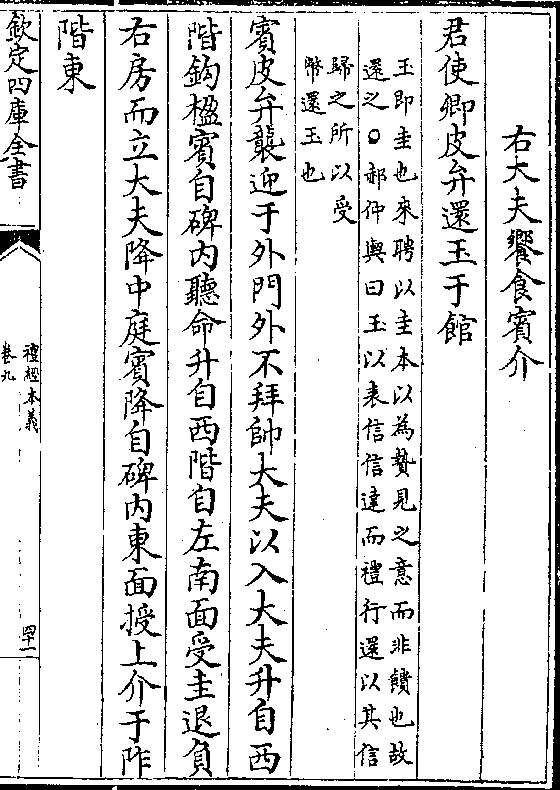 右大夫饗食賓介
君使卿皮弁還玉于館
玉即圭也來聘以圭本以為贄見之意而非饋也故
還之○郝仲輿曰玉以表信信達而禮行還以其信
歸之所以受
幣還玉也
賓皮弁襲迎于外門外不拜帥大夫以入大夫升自西
階鉤楹賓自碑内聽命升自西階自左南面受圭退負
右房而立大夫降中庭賓降自碑内東面授上介于阼
階東
欽定四庫全書
禮經本義
卷九
四十一